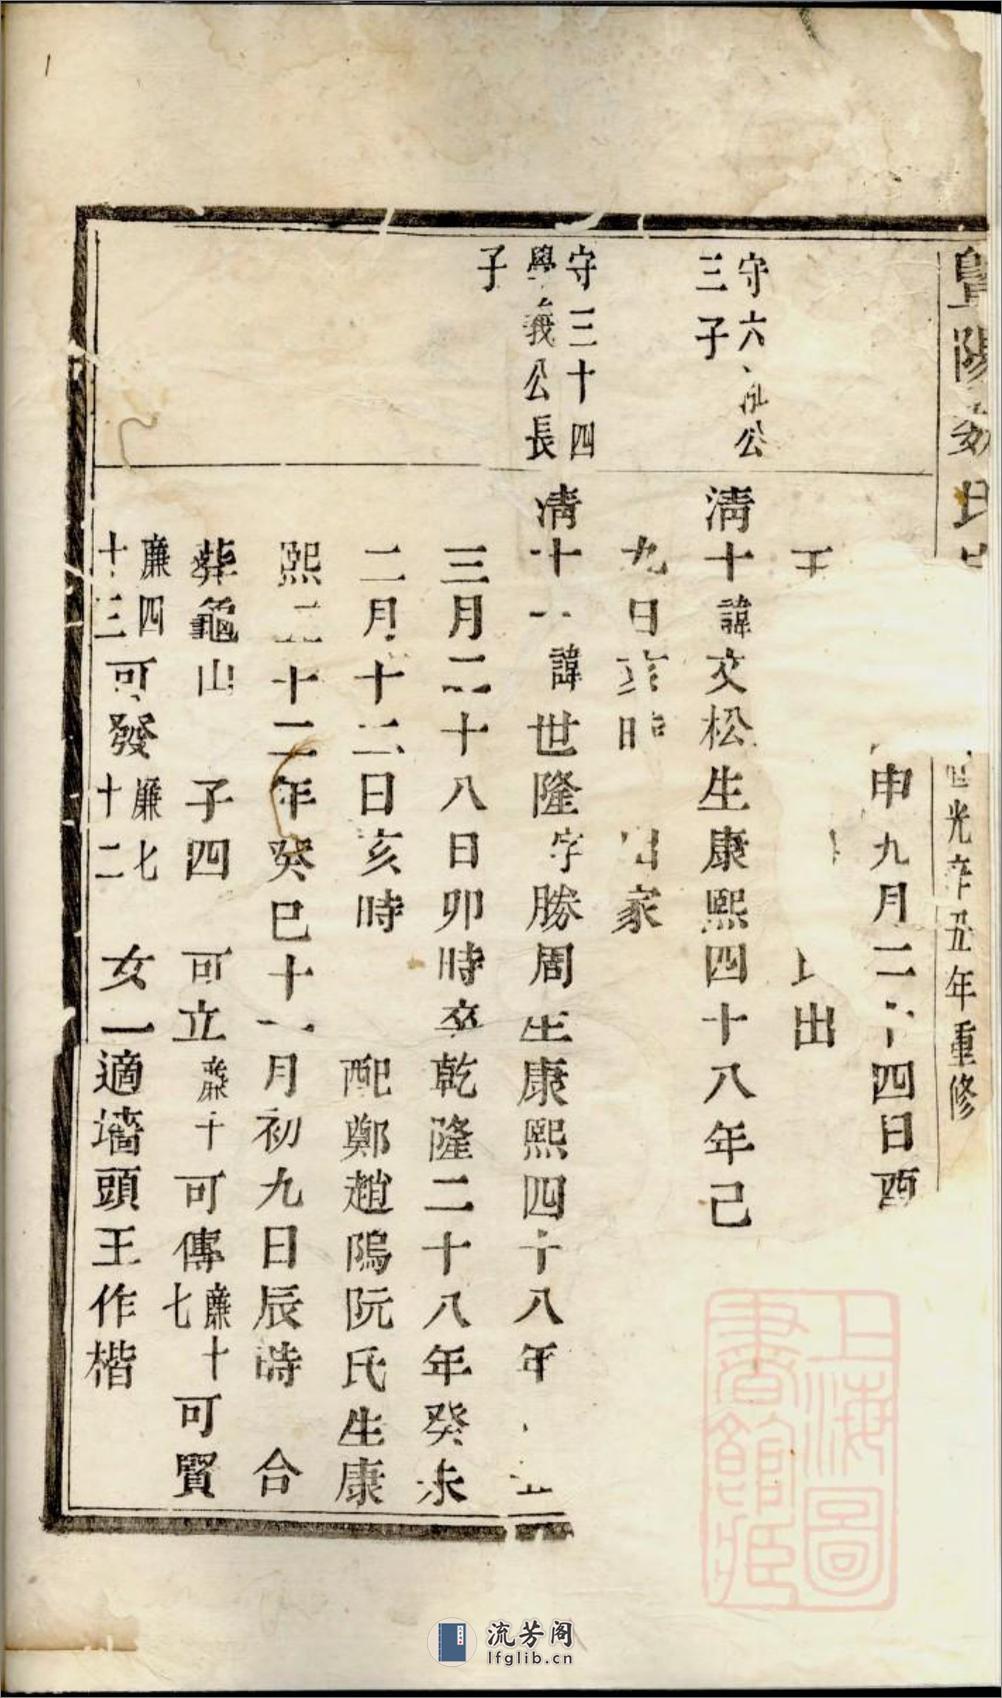 暨陽
光辛丑年重修
申九月二十四日酉
出
守六公
三子
清十諱文松生康熙四十八年己
九日亥時 出家
守三十四
學義公長
子
清十一諱世隆字勝周生康熙四十八年
三月二十八日卯時卒乾隆二十八年癸未
二月十二日亥時 配鄭趙鴻阮氏生康
熙五十二年癸巳十一月初九日辰時 合
葬龜山 子四 可立廉十可傳廉十七可賢
廉四十三可發廉七十二 女一適墻頭王作楷
上海圖書館藏
流芳阁
lfglib.cn